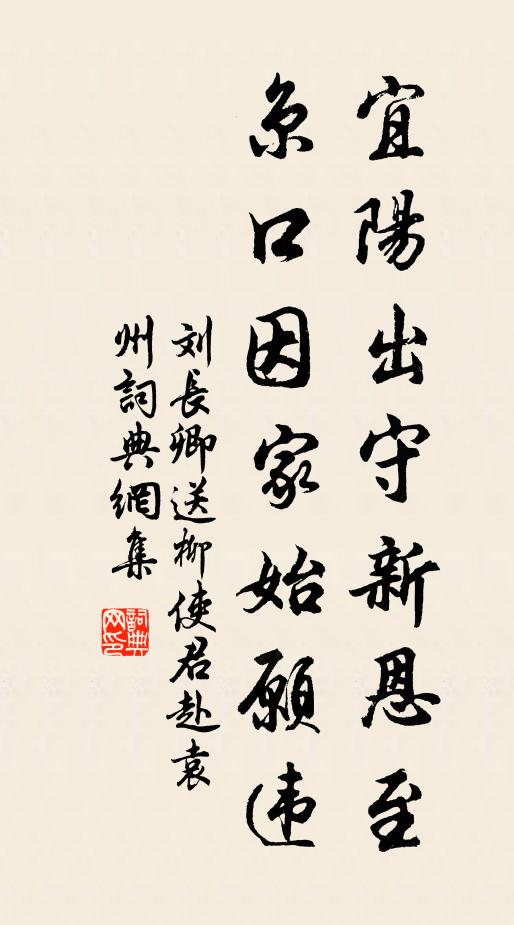 宜陽出守新恩至
京口因家始願违
刘長卿送柳使君赴袁
州詞典網集
詞典
网印